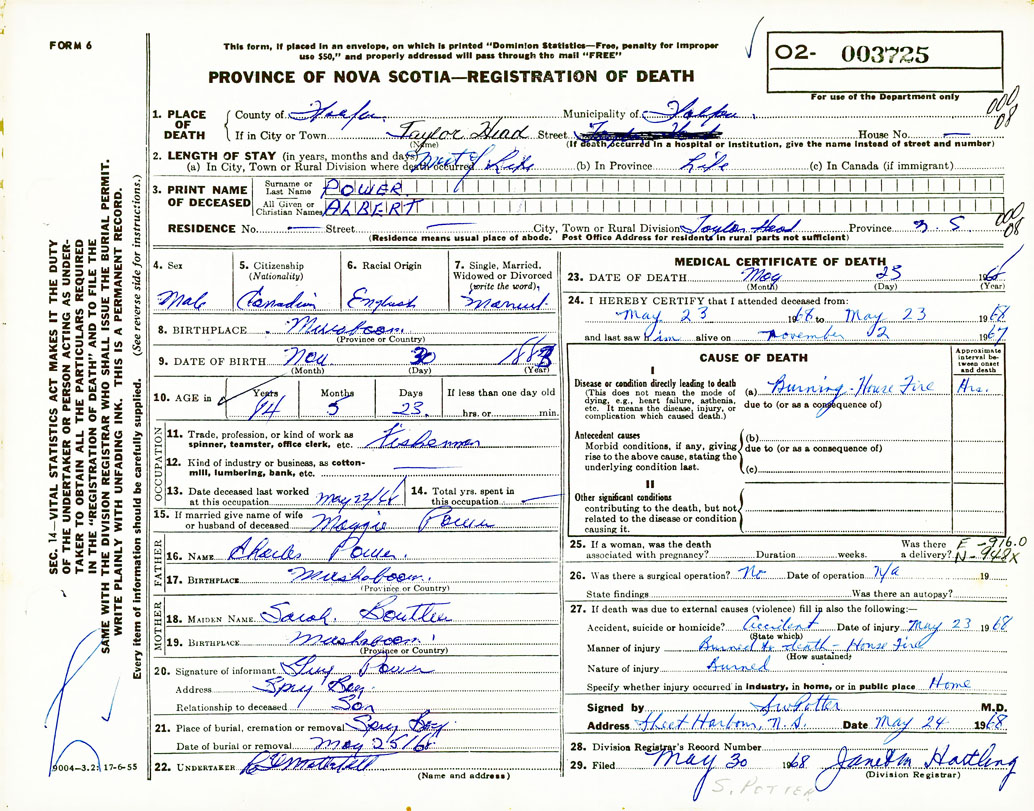 FORM 6
This form, if placed in an envelope, on which is printed "Dominion Statistics—Free, penalty for improper
use $50," and properly addressed will pass through the mail "FREE"
PROVINCE OF NOVA SCOTIA—REGISTRATION OF DEATH
O2- 003725
For use of the Department only
000
08
1. PLACE OF DEATH
County of Halifax Municipality of Halifax
If in City or Town Taylor Head Street House No. —
(Name) (If death occurred in a hospital or institution, give the name instead of street and number)
2. LENGTH OF STAY (in years, months and days)
(a) In City, Town or Rural Division where death occurred Most of Life (b) In Province Life (c) In Canada (if immigrant)
3. PRINT NAME OF DECEASED
Surname or Last Name POWER
All Given or Christian Names ALBERT
000
08
RESIDENCE No. — Street — City, Town or Rural Division Taylor Head Province N. S
(Residence means usual place of abode. Post Office Address for residents in rural parts not sufficient)
4. Sex Male
5. Citizenship (Nationality) Canadian
6. Racial Origin English
7. Single, Married, Widowed or Divorced (write the word) Married
8. BIRTHPLACE Mushaboom
(Province or Country)
9. DATE OF BIRTH Nov 30 1883
(Month) (Day) (Year)
10. AGE in Years 84 Months 5 Days 23 If less than one day old
hrs. or min.
OCCUPATION
11. Trade, profession, or kind of work as spinner, teamster, office clerk, etc. Fisherman
12. Kind of industry or business, as cotton-mill, lumbering, bank, etc. —
13. Date deceased last worked at this occupation May 22/68 14. Total yrs. spent in this occupation —
15. If married give name of wife or husband of deceased Maggie Power
FATHER
16. NAME Charles Power
17. BIRTHPLACE Mushaboom
(Province or Country)
MOTHER
18. MAIDEN NAME Sarah Boutlier
19. BIRTHPLACE Mushaboom
(Province or Country)
20. Signature of informant Guy Power
Address Spry Bay
Relationship to deceased Son
21. Place of burial, cremation or removal Spry Bay
Date of burial or removal May 25/68
22. UNDERTAKER
(Name and address)
MEDICAL CERTIFICATE OF DEATH
23. DATE OF DEATH May 23 1968
(Month) (Day) (Year)
24. I HEREBY CERTIFY that I attended deceased from:
May 23 1968 to May 23 1968
and last saw him alive on November 2 1967
CAUSE OF DEATH
Approximate interval between onset and death
I
Disease or condition directly leading to death
(This does not mean the mode of dying, e.g., heart failure, asthenia, etc. It means the disease, injury, or complication which caused death.)
(a) Burning - House Fire Hrs.
due to (or as a consequence of)
Antecedent causes
Morbid conditions, if any, giving rise to the above cause, stating the underlying condition last.
(b)
due to (or as a consequence of)
(c)
II
Other significant conditions
contributing to the death, but not related to the disease or condition causing it.
25. If a woman, was the death associated with pregnancy? Duration weeks. Was there a delivery?
E-916.0
N-948X
26. Was there a surgical operation? No Date of operation N/a 19
State findings Was there an autopsy?
27. If death was due to external causes (violence) fill in also the following:—
Accident, suicide or homicide? Accident Date of injury May 23 1968
(State which)
Manner of injury Burned to death - House Fire
(How sustained)
Nature of injury Burned
Specify whether injury occurred in industry, in home, or in public place Home
Signed by SW Potter M.D.
Address Sheet Harbour, N.S. Date May 24 1968
28. Division Registrar's Record Number
29. Filed May 30 1968 Janet M Hartling
(Division Registrar)
S. POTTER
SEC. 14—VITAL STATISTICS ACT MAKES IT THE DUTY
OF THE UNDERTAKER OR PERSON ACTING AS UNDER-
TAKER TO OBTAIN ALL THE PARTICULARS REQUIRED
IN THE "REGISTRATION OF DEATH" AND TO FILE THE
SAME WITH THE DIVISION REGISTRAR WHO SHALL ISSUE THE BURIAL PERMIT.
WRITE PLAINLY WITH UNFADING INK. THIS IS A PERMANENT RECORD.
Every item of information should be carefully supplied. (See reverse side for instructions.)
9004—3.2: 17-6-55